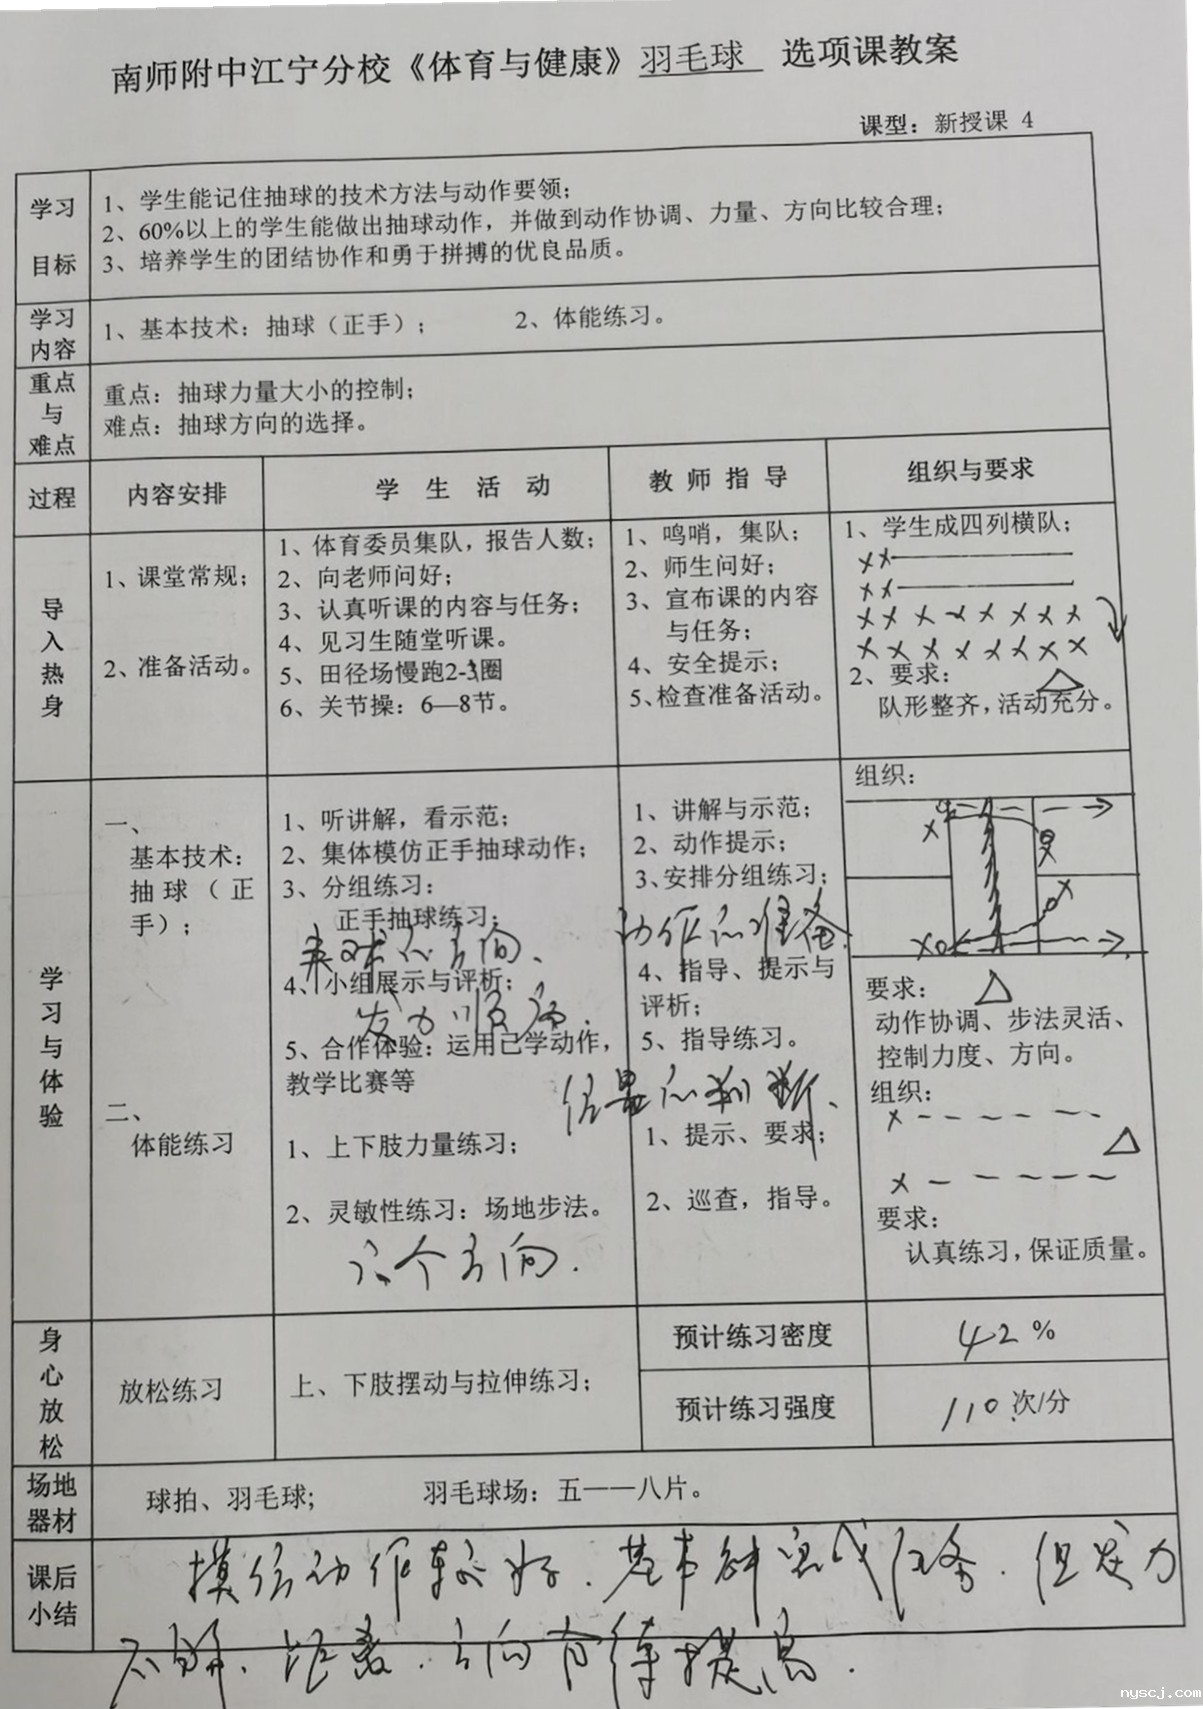 南师附中江宁分校《体育与健康》羽毛球 选项课教案
课型：新授课 4
学习
目标
1、学生能记住抽球的技术方法与动作要领；
2、60%以上的学生能做出抽球动作，并做到动作协调、力量、方向比较合理；
3、培养学生的团结协作和勇于拼搏的优良品质。
学习
内容
1、基本技术：抽球（正手）； 2、体能练习。
重点
与
难点
重点：抽球力量大小的控制；
难点：抽球方向的选择。
过程 内容安排 学 生 活 动 教 师 指 导 组织与要求
导
入
热
身
1、课堂常规；
2、准备活动。
1、体育委员集队，报告人数；
2、向老师问好；
3、认真听课的内容与任务；
4、见习生随堂听课。
5、田径场慢跑2-3圈
6、关节操：6—8节。
1、鸣哨，集队；
2、师生问好；
3、宣布课的内容
与任务；
4、安全提示；
5、检查准备活动。
1、学生成四列横队；
2、要求：
队形整齐，活动充分。
学
习
与
体
验
一、
基本技术：
抽球（正
手）；
二、
体能练习
1、听讲解，看示范；
2、集体模仿正手抽球动作；
3、分组练习：
正手抽球练习；
来球的方向、
4、小组展示与评析；
发力顺序.
5、合作体验：运用已学动作，
教学比赛等
1、上下肢力量练习；
2、灵敏性练习：场地步法。
六个方向.
1、讲解与示范；
2、动作提示；
3、安排分组练习；
动作的准备.
4、指导、提示与
评析；
5、指导练习。
位置的判断、
1、提示、要求；
2、巡查，指导。
组织：
要求：
动作协调、步法灵活、
控制力度、方向。
组织：
要求：
认真练习，保证质量。
身
心
放
松
放松练习
上、下肢摆动与拉伸练习；
预计练习密度 42%
预计练习强度 110次/分
场地
器材
球拍、羽毛球； 羽毛球场：五——八片。
课后
小结
模仿动作较好.基本能完成任务.但发力
不够、距离.方向有待提高.
nyscj.com